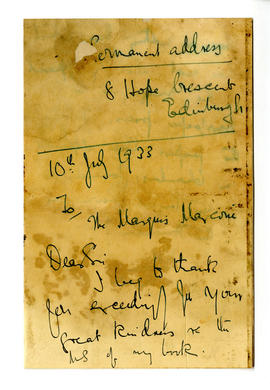 Permanent address
8 Hope Crescent
Edinburgh
10th July 1933
To,
The Marquis Marconi
Dear Sir
I beg to thank
you exceedingly for your
great kindness re the
MS of my book.